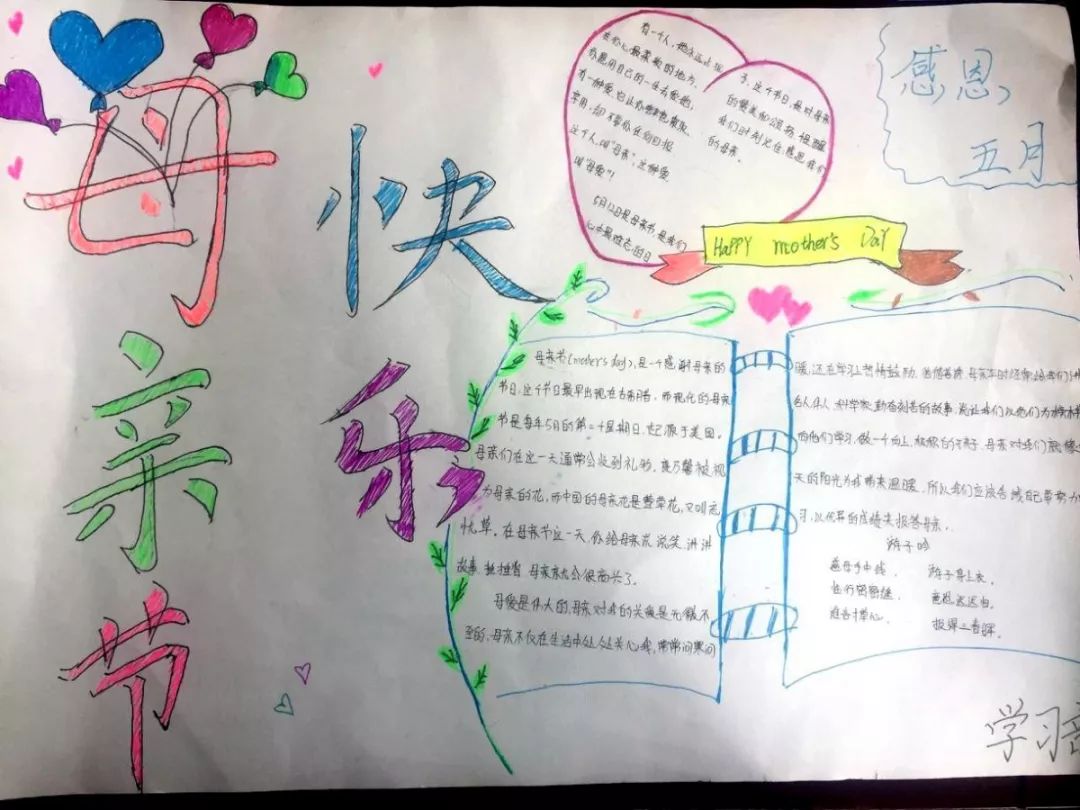 母亲节
快乐
有一个人,她永远占据
在你心最柔软的地方,
你愿用自己的一生去爱她;
有一种爱,它让你
享用,却不要你任何回报
这个人,叫"母亲",这种爱,
叫"母爱"!
5月12日是母亲节,是我们
心中最难忘的日
子,这个节日,是对母亲
的赞美和颂扬,提醒
我们时刻记住感恩我们
的母亲。
感恩,
五月
HAPPY mother's DAY
母亲节(mother's day),是一个感谢母亲的
节日,这个节日最早出现在古希腊,而现代的母亲
节是每年5月的第二个星期日,起源于美国。
母亲们在这一天通常会收到礼物,康乃馨被视
为母亲的花,而中国的母亲花是萱草花,又叫忘
忧草。在母亲节这一天,你给母亲说说笑,讲讲
故事,捶捶背,母亲就会很高兴了。
母爱是伟大的,母亲对我的关爱是无微不
至的,母亲不仅在生活中处处关心我,常常问寒问
暖,还在学习上热情鼓励,
名人伟人,科学家,勤奋刻苦的故事,
向他们学习,做一个向上,积极的孩子,母亲对我们
天的阳光为我带来温暖,所以我们应该告诫自己要努力
习,以优异的成绩来报答母亲。
游子吟
慈母手中线, 游子身上衣。
临行密密缝, 意恐迟迟归。
谁言寸草心, 报得三春晖。
学习